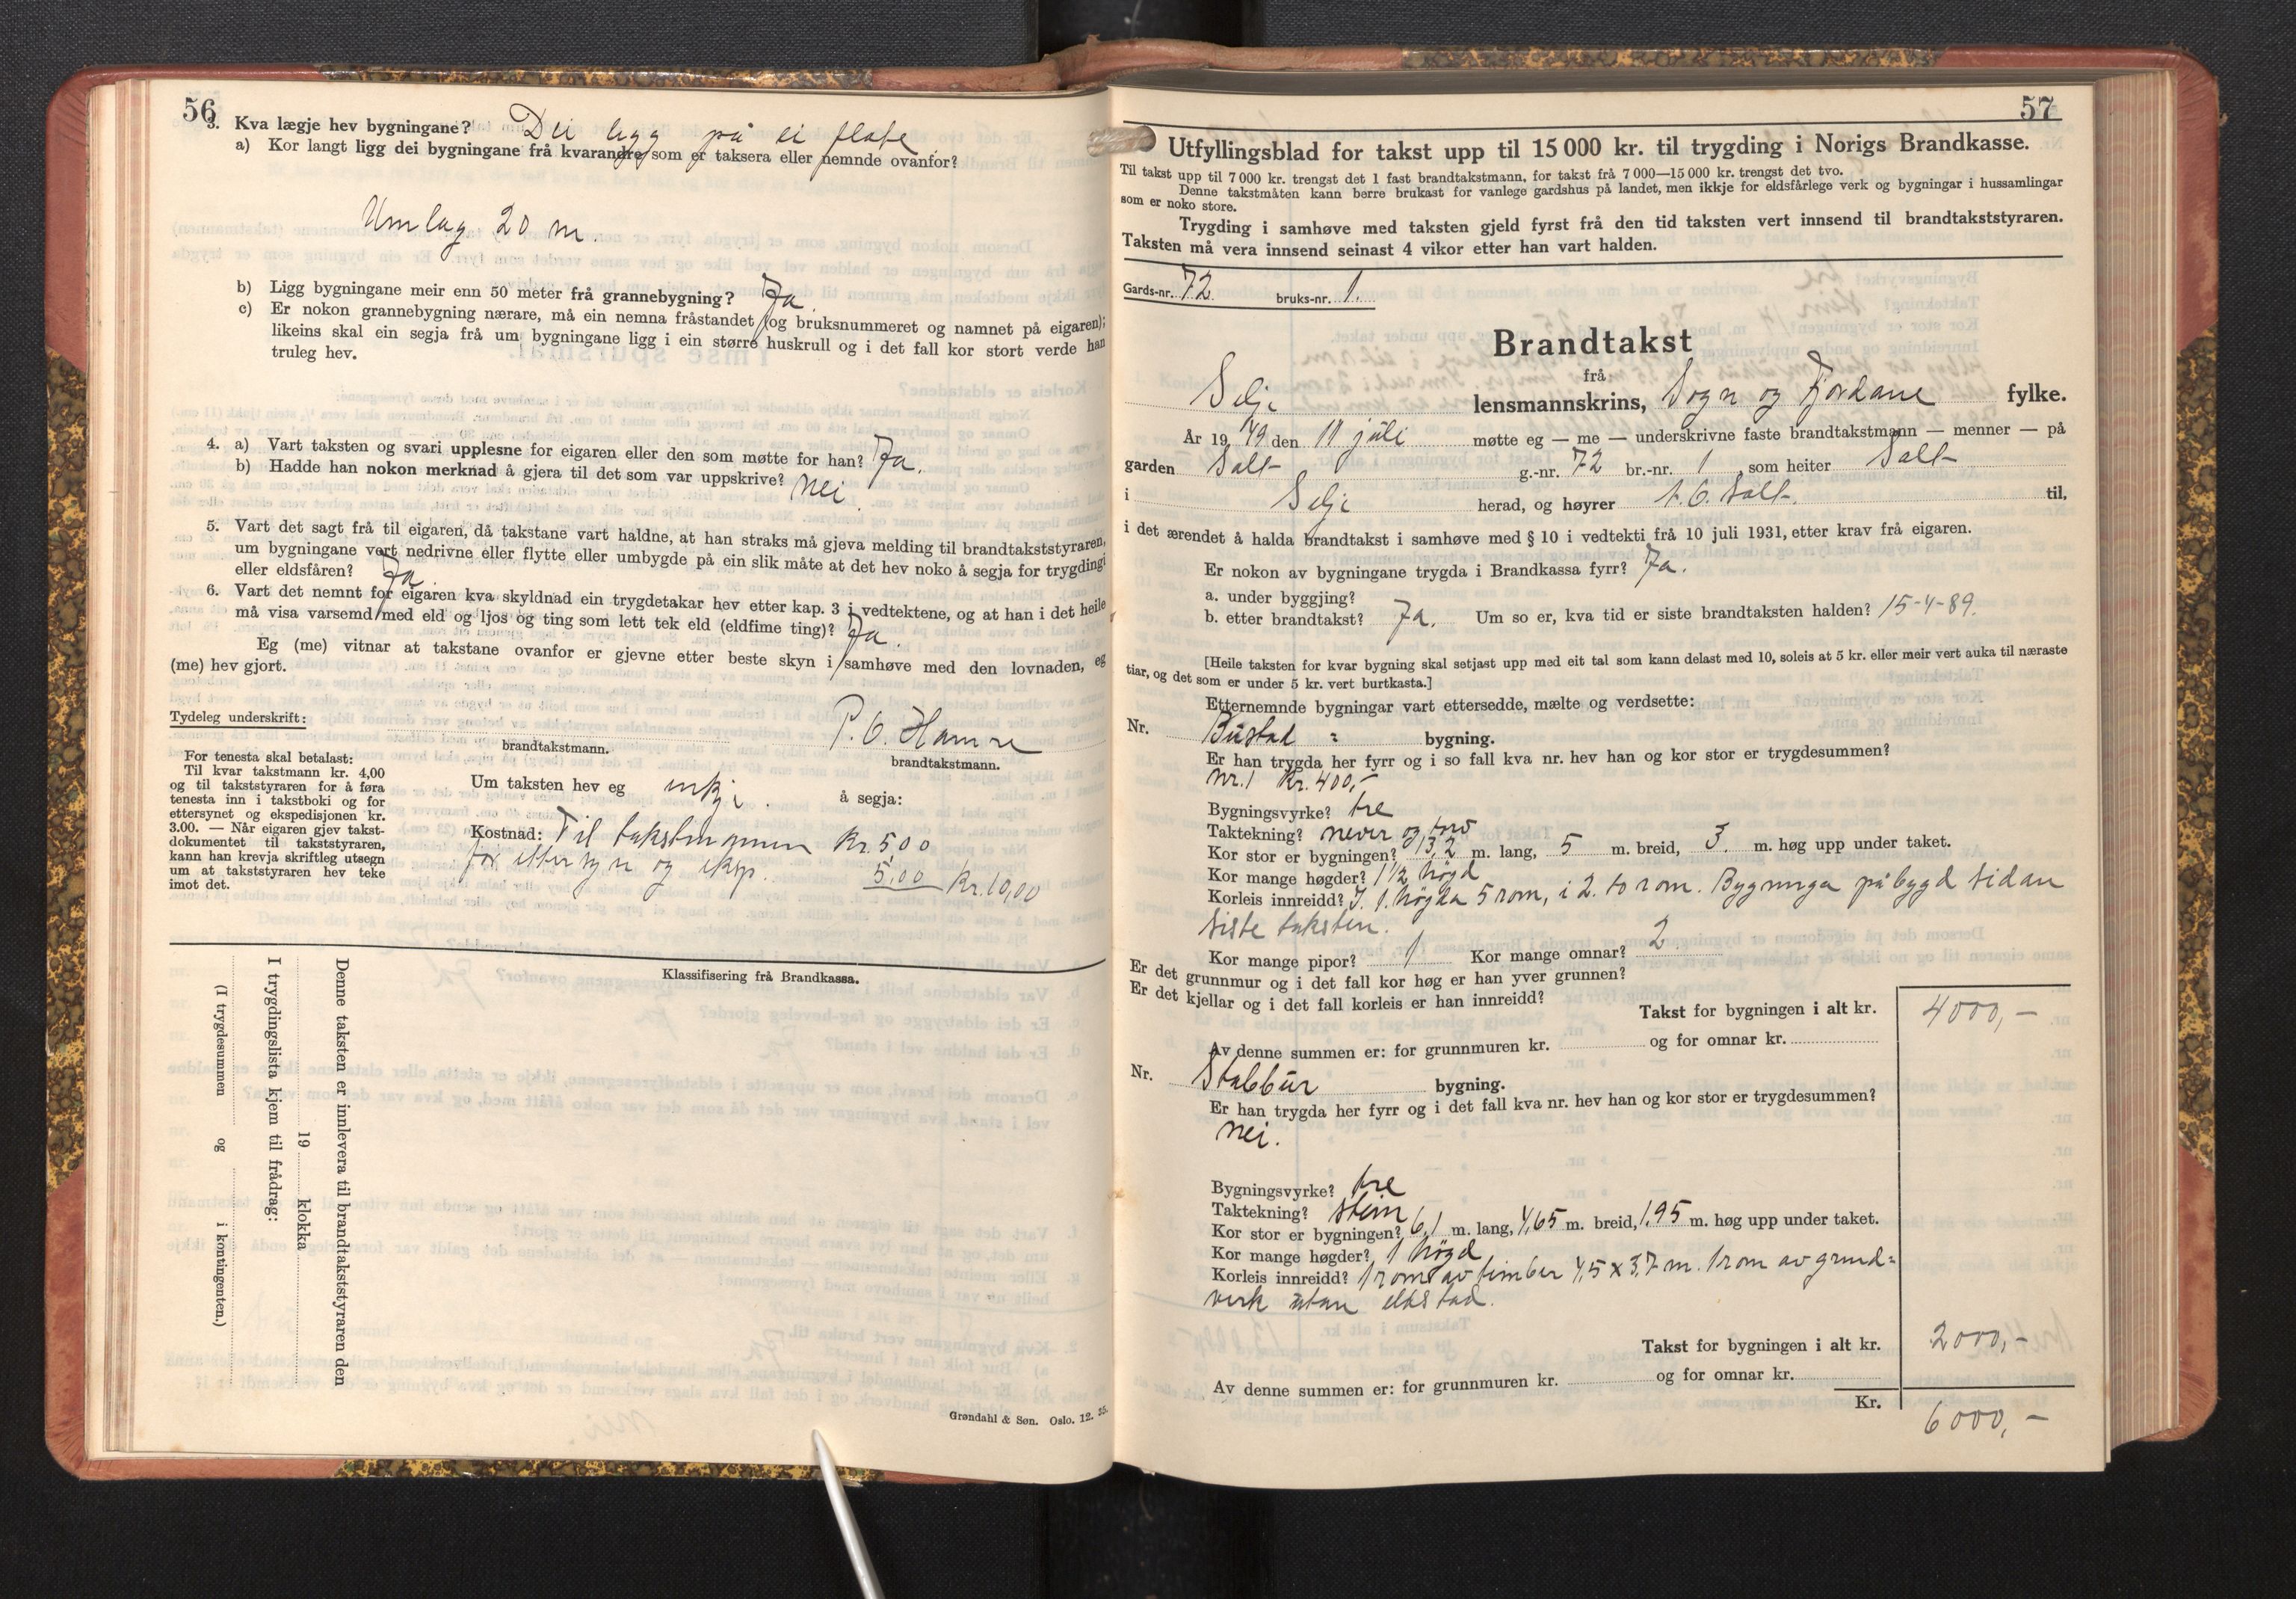 56
3. Kva lægje hev bygningane? Dei ligg på ei flate
a) Kor langt ligg dei bygningane frå kvarandre, som er taksera eller nemnde ovanfor?
Umlag 20 m.
b) Ligg bygningane meir enn 50 meter frå grannebygning? Ja.
c) Er nokon grannebygning nærare, må ein nemna fråstandet (og bruksnummeret og namnet på eigaren);
likeins skal ein segja frå um bygningane ligg i ein større huskrull og i det fall kor stort verde han
truleg hev.
4. a) Vart taksten og svari upplesne for eigaren eller den som møtte for han? Ja.
b) Hadde han nokon merknad å gjera til det som var uppskrive? Nei.
5. Vart det sagt frå til eigaren, då takstane vart haldne, at han straks må gjeva melding til brandtakststyraren,
um bygningane vert nedrivne eller flytte eller umbygde på ein slik måte at det hev noko å segja for trygdingi
eller eldsfåren? Ja
6. Vart det nemnt for eigaren kva skyldnad ein trygdetakar hev etter kap. 3 i vedtektene, og at han i det heile
må visa varsemd med eld og ljos og ting som lett tek eld (eldfime ting)? Ja.
Eg (me) vitnar at takstane ovanfor er gjevne etter beste skyn i samhøve med den lovnaden, eg
(me) hev gjort.
Tydeleg underskrift:
P. O. Hamre
brandtakstmann.
brandtakstmann.
For tenesta skal betalast:
Til kvar takstmann kr. 4,00
og til takststyraren for å føra
tenesta inn i takstboki og for
ettersynet og ekspedisjonen kr.
3.00. — Når eigaren gjev takst-
dokumentet til takststyraren,
kann han krevja skriftleg utsegn
um at takststyraren hev teke
imot det.
Um taksten hev eg inkje. å segja:
Kostnad: Til takstmannen Kr. 5,00
for ettersyn og eksp. 5,00 Kr. 10,00
Klassifisering frå Brandkassa.
Denne taksten er innlevera til brandtakststyraren den
19 klokka
I trygdingslista kjem til frådrag:
(I trygdesummen og i kontingenten.)
Grøndahl & Søn. Oslo. 12. 35.
57
Utfyllingsblad for takst upp til 15 000 kr. til trygding i Norigs Brandkasse.
Til takst upp til 7 000 kr. trengst det 1 fast brandtakstmann, for takst frå 7 000—15 000 kr. trengst det tvo.
Denne takstmåten kann berre brukast for vanlege gardshus på landet, men ikkje for eldsfårlege verk og bygningar i hussamlingar
som er noko store.
Trygding i samhøve med taksten gjeld fyrst frå den tid taksten vert innsend til brandtakststyraren.
Taksten må vera innsend seinast 4 vikor etter han vart halden.
Gards-nr. 72 bruks-nr. 1.
Brandtakst
frå
Selje lensmannskrins, Sogn og Fjordane fylke.
År 1949 den 11 juli møtte eg — me — underskrivne faste brandtakstmann — menner — på
garden Salt g.-nr. 72 br.-nr. 1, som heiter Salt
i Selje herad, og høyrer A. O. Salt. til.
i det ærendet å halda brandtakst i samhøve med § 10 i vedtekti frå 10 juli 1931, etter krav frå eigaren.
Er nokon av bygningane trygda i Brandkassa fyrr? Ja.
a. under byggjing?
b. etter brandtakst? Ja. Um so er, kva tid er siste brandtaksten halden? 15-4-89.
[Heile taksten for kvar bygning skal setjast upp med eit tal som kann delast med 10, soleis at 5 kr. eller meir vert auka til næraste
tiar, og det som er under 5 kr. vert burtkasta.]
Etternemnde bygningar vart ettersedde, mælte og verdsette:
Nr. Bustad - bygning.
Er han trygda her fyrr og i so fall kva nr. hev han og kor stor er trygdesummen?
Nr. 1 Kr. 400,-
Bygningsvyrke? tre
Taktekning? never og torv
Kor stor er bygningen? 13,2 m. lang, 5 m. breid, 3. m. høg upp under taket.
Kor mange høgder? 1½ høgd
Korleis innreidd? I 1. høgda 5 rom, i 2. to rom. Bygninga påbygd sidan
siste taksten.
Kor mange pipor? 1 Kor mange omnar? 2
Er det grunnmur og i det fall kor høg er han yver grunnen?
Er det kjellar og i det fall korleis er han innreidd?
Takst for bygningen i alt kr. 4000,-
Av denne summen er: for grunnmuren kr. og for omnar kr.
Nr. Stabbur bygning.
Er han trygda her fyrr og i det fall kva nr. hev han og kor stor er trygdesummen?
Nei.
Bygningsvyrke? tre
Taktekning? stein
Kor stor er bygningen? 6,1 m. lang, 4,65 m. breid, 1,95 m. høg upp under taket.
Kor mange høgder? 1 høgd
Korleis innreidd? 1 rom av timber 4,5 x 3,7 m. 1 rom av grind-
verk utan eldstad.
Takst for bygningen i alt kr. 2000,-
Av denne summen er: for grunnmuren kr. og for omnar kr.
Kr. 6000,-